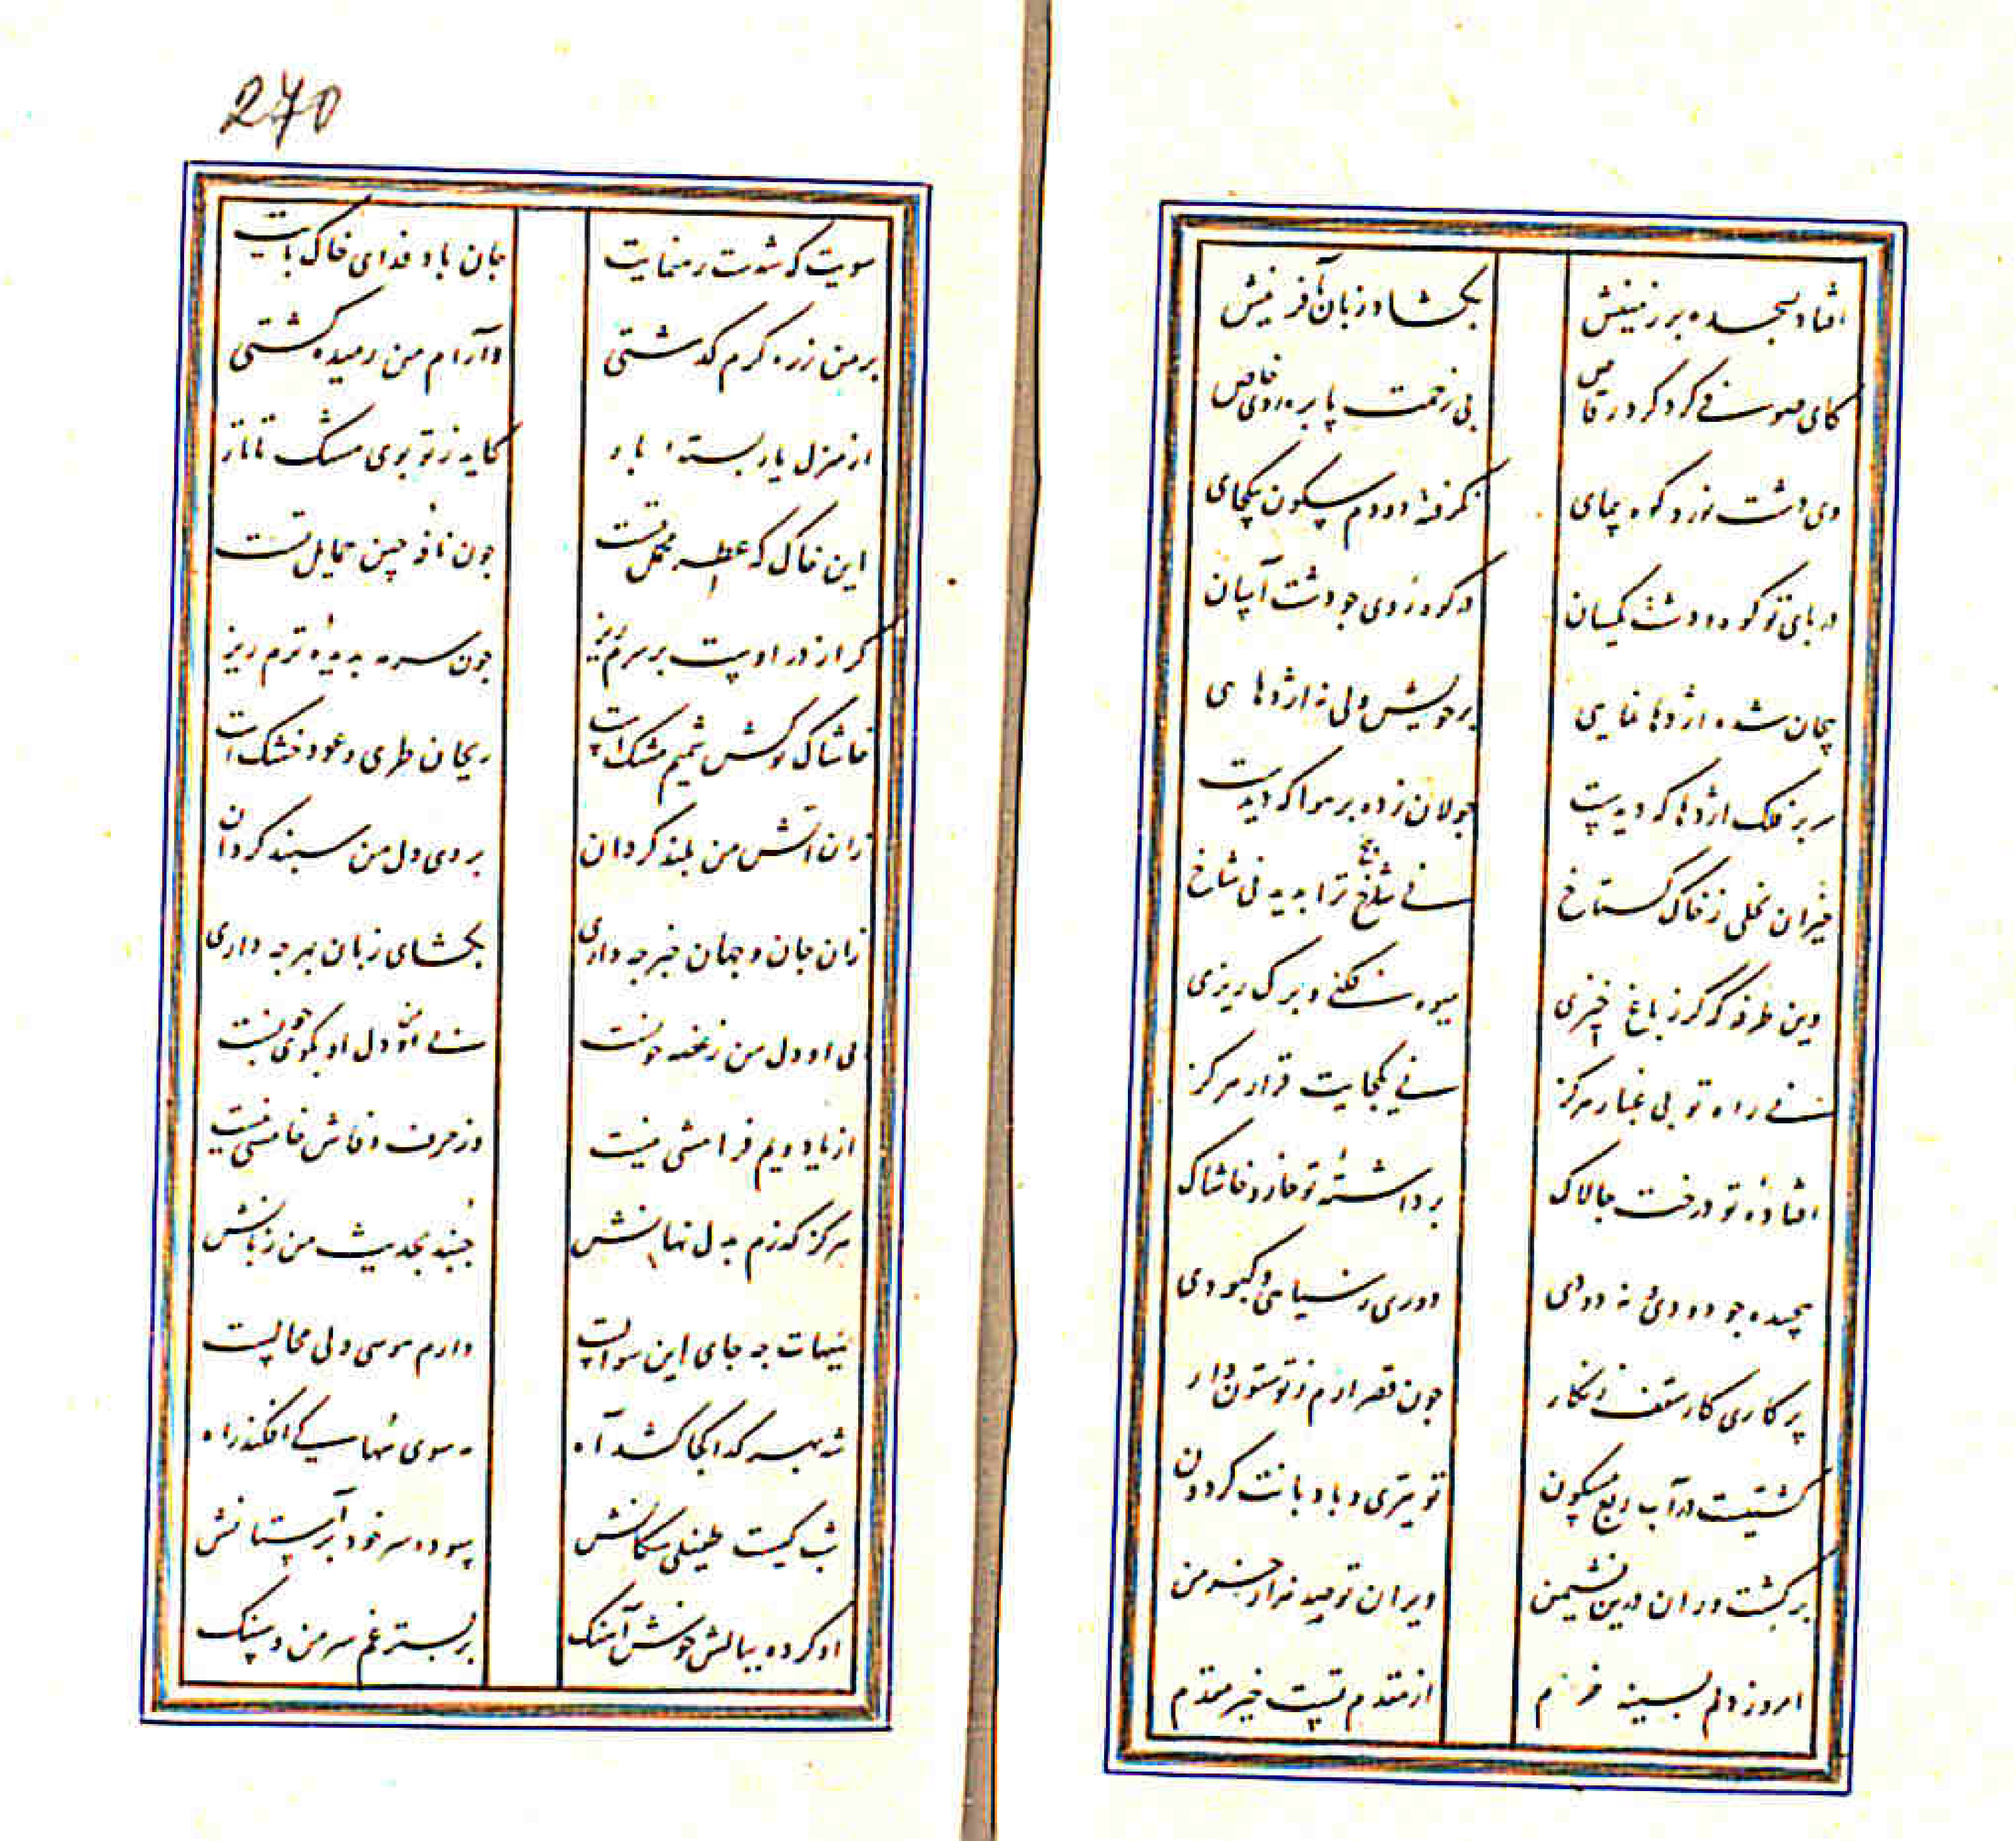 افتاد بسجده بر زمینش
بکشاد زبان بآفرینش
کای صوفی کرد کرد رقاص
بی زحمت پا بره روی خاص
وی دشت نورد کوه پیمای
نکرفته دو دم سکون بیکجای
در پای تو کوه و دشت یکسان
در کوه روی چو دشت آسان
پیچان شده اژدها نمایی
بر خویش ولی نه اژدهایی
سر بر فلک اژدها که دیدست
جولان زده بر هوا که دیدست
خیزان نخلی ز خاک کستاخ
نی بیخ ترا پدید نی شاخ
وین طرفه که کر ز باغ خیزی
میوه فکنی و برک ریزی
نی راه تو بی غبار هرکز
نی یکجایت قرار هرکز
افتاده تو درخت چالاک
برداشته تو خار و خاشاک
پیچیده چو دودی و نه دودی
دوری ز سیاهی و کبودی
پرکاری کار سقف زنکار
چون قصر ارم ز تو ستون دار
کشتیست در آب ربع مسکون
تو تیری و بادبانت کردون
برکشت دران درین نشیمن
ویران تو صد هزار خرمن
امروز دلم بسینه خرم
از مقدم تست خیر مقدم
270
سویت که شدست رهنمایت
جان باد فدای خاک پایت
بر من ز ره کرم کذشتی
وآرام من رمیده کشتی
از منزل یار بسته بار
کاید ز تو بوی مشک تاتار
این خاک که عطر محمل تست
چون نافه چین حمایل تست
کر از در اوست بر سرم ریز
چون سرمه بدیده ترم ریز
خاشاک کوش شمیم مشک است
ریحان طری و عود خشک است
زان آتش من بلند کردان
بر وی دل من سپند کردان
زان جان و جهان خبر چه داری
بکشای زبان بهر چه داری
بی او دل من ز غصه خونست
نی من دل او بکوی چونست
از یاد ویم فرامشی نیست
وز حرف وفاش خامشی نیست
هرکز کذرم بدل نهانش
جنبد بحدیث من زبانش
هیهات چه جای این سوالست
دارم هوسی ولی محالست
شه بهر کدا کجا کشد آه
مه سوی سها کی افکند راه
شب کیست طفیلی سکانش
سوده سر خود بر آستانش
او کرده ببالش خوش آهنک
بر بستر غم سر من و سنک